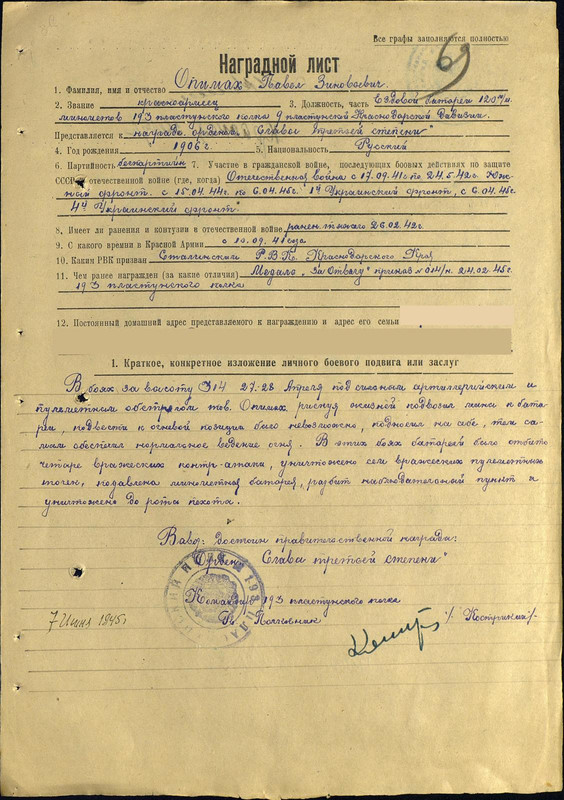 Все графы заполняются полностью
69
Наградной лист
1. Фамилия, имя и отчество Опимах Павел Зиновоевич.
2. Звание красноармеец 3. Должность, часть Ездовой батареи 120 м/м.
минометов 193 пластунского полка 9 пластунской Краснодарской Дивизии.
Представляется к награде ордена „Слава третьей степени"
4. Год рождения 1906 г. 5. Национальность Русский
6. Партийность беспартийн 7. Участие в гражданской войне, последующих боевых действиях по защите
СССР и отечественной войне (где, когда) Отечественная война с 17.09.41 г по 24.5.42 г. Юж-
ный фронт. с 15.04.44 г. по 6.04.45 г. „1й Украинский фронт", с 6.04.45 г
„4й Украинский фронт"
8. Имеет ли ранения и контузии в отечественной войне ранен тяжело 26.02.42 г.
9. С какого времени в Красной Армии с 10.09.41 года
10. Каким РВК призван Сталинским Р.В.К. Краснодарского Края
11. Чем ранее награжден (за какие отличия) Медаль „За Отвагу" приказ № 014/н. 24.02.45 г.
193 пластунского полка
12. Постоянный домашний адрес представляемого к награждению и адрес его семьи
1. Краткое, конкретное изложение личного боевого подвига или заслуг
В боях за высоту 314 27-28 Апреля под сильным артиллерийским и
пулеметным обстрелом тов. Опимах, рискуя жизней подвозил мины к бата-
реи, подвести к огневой позиции было невозможно, подносил на себе, тем са-
мым обеспечил нормальное ведение огня. В этих боях батареей было отбито
четыре вражеских контр-атаки, уничтожено сем вражеских пулеметных
точек, подавлена минометная батарея, разбит наблюдательный пункт и
уничтожено до роты пехота.
Вывод: Достоин правительственной награда:
Орден „Слава третьей степени"
Командир 193 пластунского полка
7 Июня 1945 г. Полковник /Костринкий/.